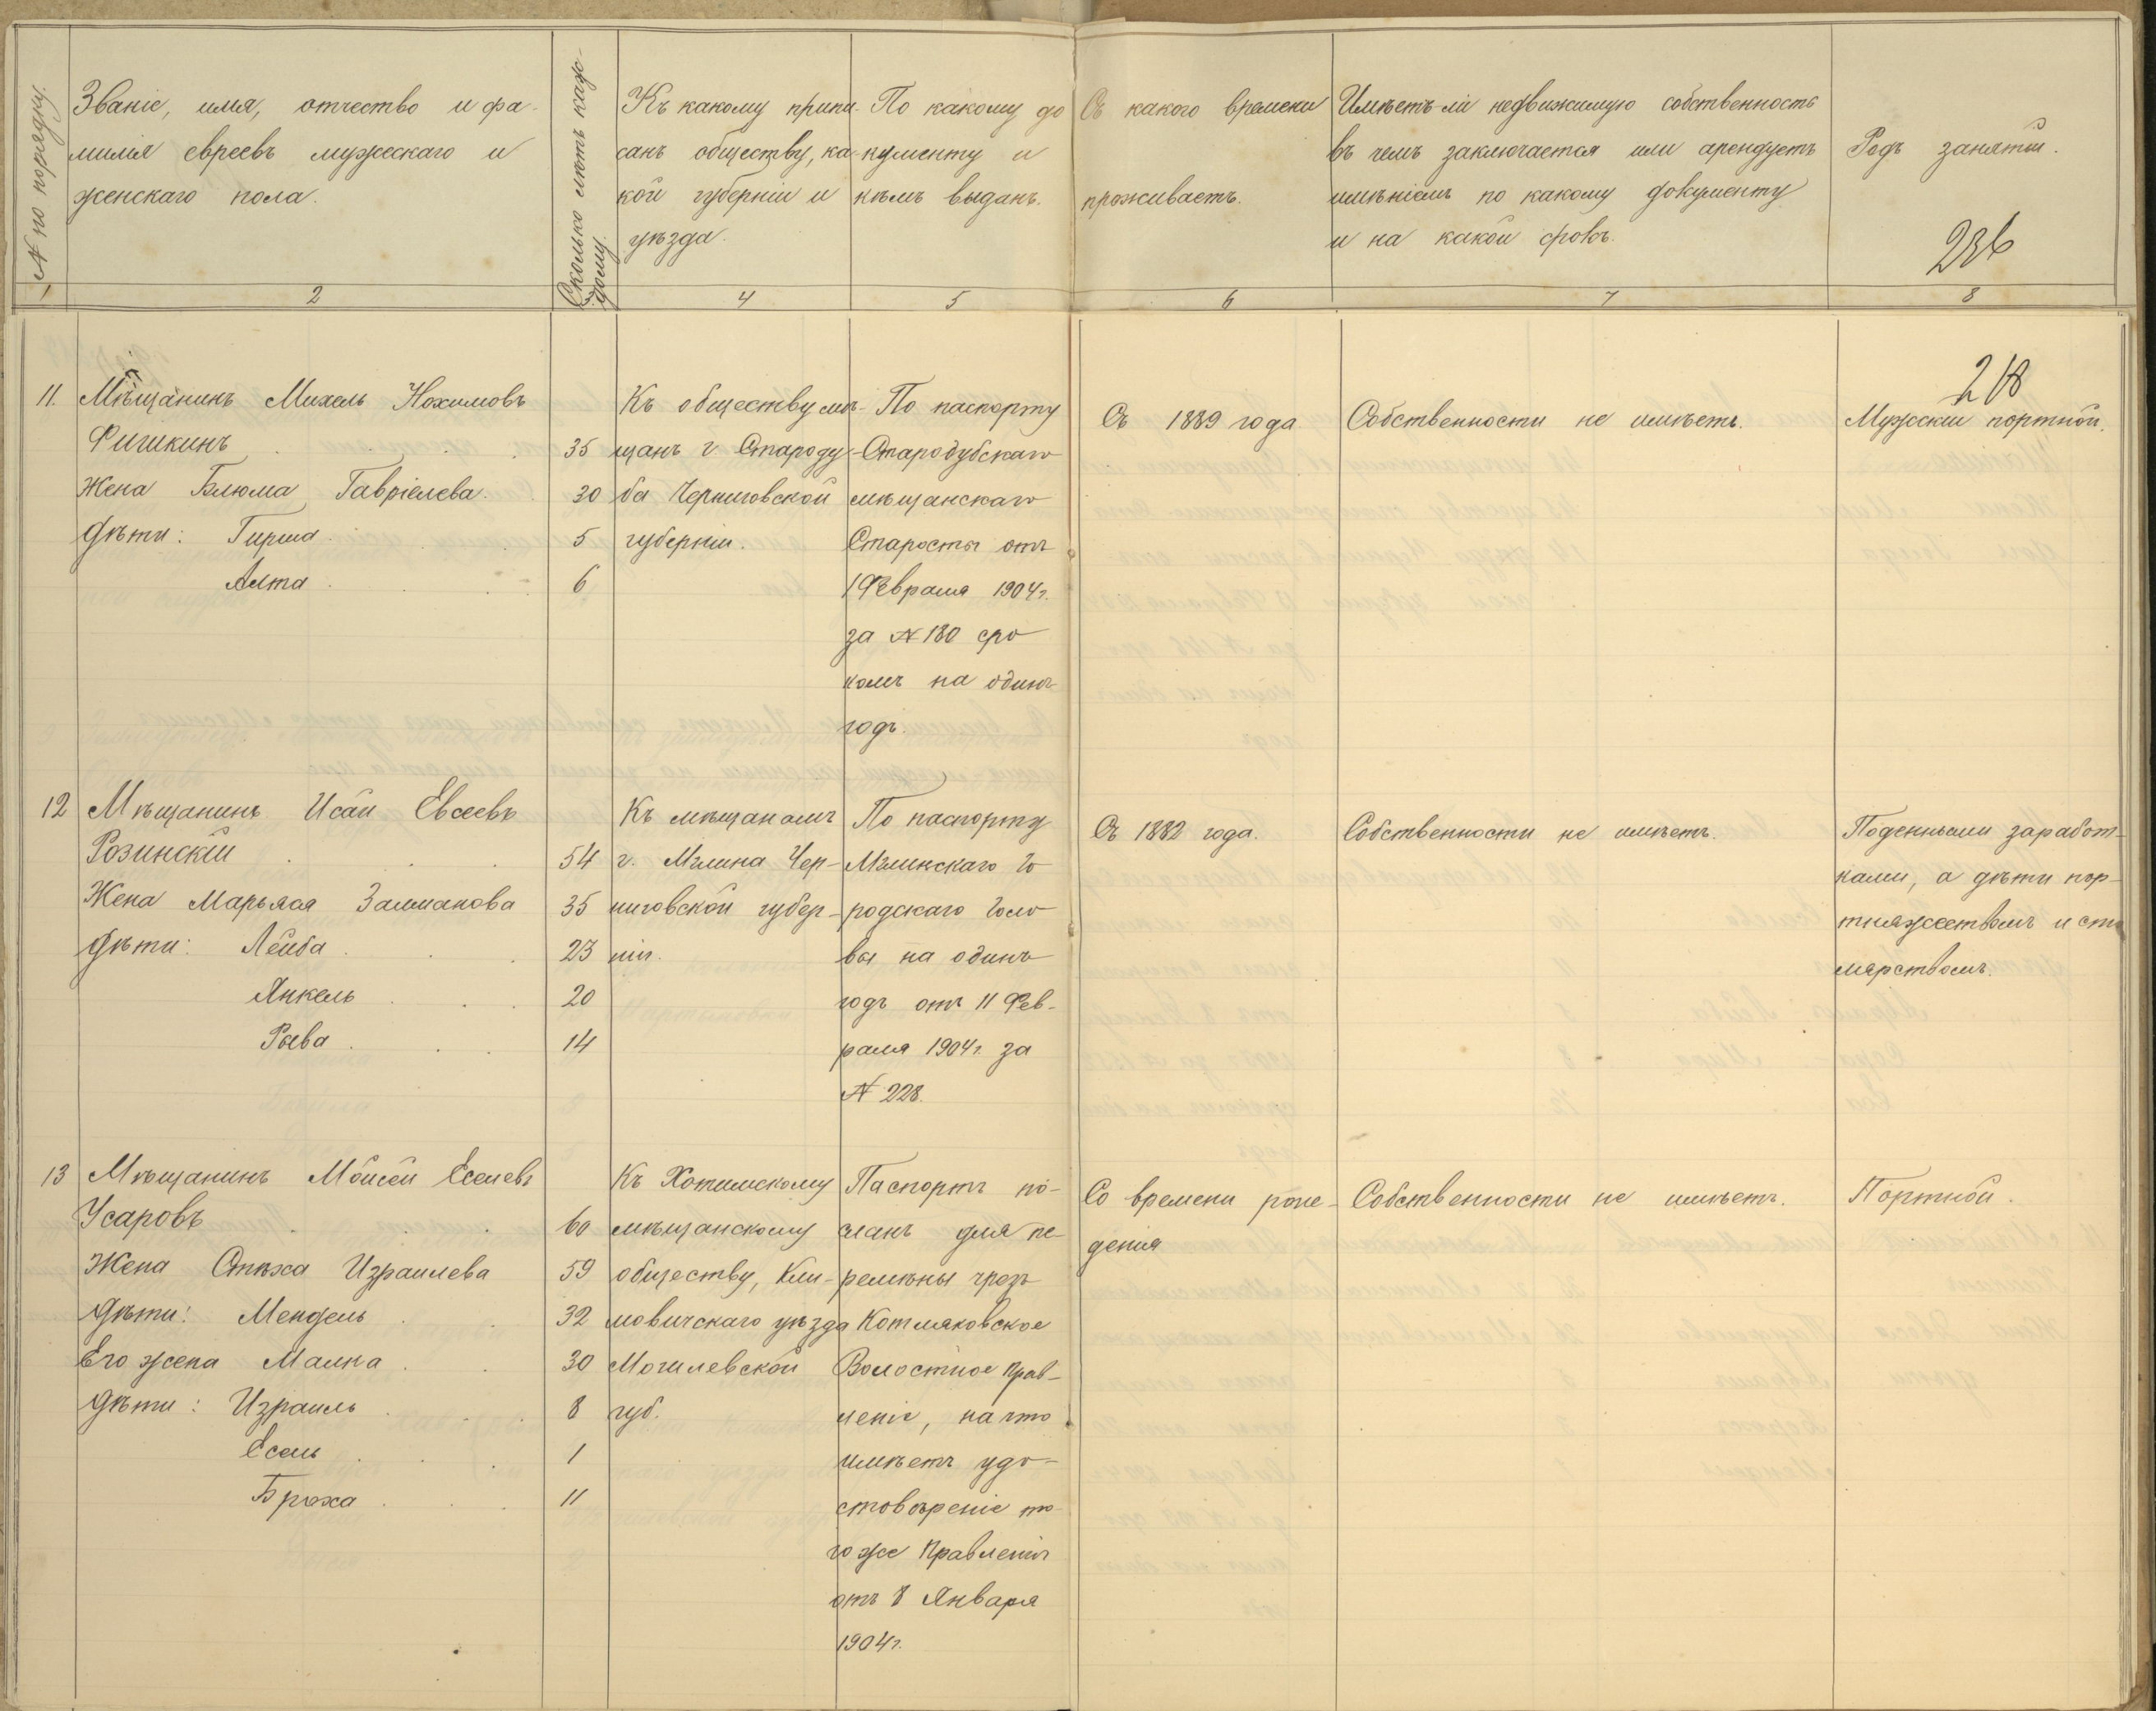 № по порядку.
Званіе, имя, отчество и фа-
милія евреевъ мужескаго и
женскаго пола.
Сколько лѣтъ каж-
дому.
Къ какому припи-
санъ обществу, ка-
кой губерніи и
уѣзда.
По какому до
кументу и
кѣмъ выданъ.
Съ какого времени
проживаетъ.
Имѣетъ-ли недвижимую собственность
въ чемъ заключается или арендуетъ
имѣніемъ по какому документу
и на какой срокъ.
Родъ занятій.
236
1 2 3 4 5 6 7 8
218
11. Мѣщанинъ Михель Нохимовъ
Фишкинъ 35
Жена Блюма Гавріелева 30
Дѣти: Гирша 5
Алта 6
Къ обществу мѣ-
щанъ г Староду-
ба Черниговской
губерніи.
По паспорту
Стародубскаго
мѣщанскаго
Старосты отъ
1 Февраля 1904 г.
за № 180 сро
комъ на одинъ
годъ.
Съ 1889 года
Собственности не имѣетъ.
Мужскій портной.
12 Мѣщанинъ Исай Евсеевъ
Розинскій 54
Жена Марьяся Залманова 35
Дѣти: Лейба 23
Янкель 20
Рыва 14
Къ мѣщанамъ
г. Мглина Чер-
ниговской губер-
ніи.
По паспорту
Мглинскаго Го
родскаго Голо
вы на одинъ
годъ отъ 11 Фев-
раля 1904 г. за
№ 228.
Съ 1882 года.
Собственности не имѣетъ.
Поденными заработ-
ками, а дѣти пор-
тняжествомъ и сто
лярствомъ.
13 Мѣщанинъ Мойсей Еселевъ
Усаровъ 60
Жена Стѣха Израилева 59
Дѣти: Мендель 32
Его жена Малка 30
Дѣти: Израиль 8
Есель 1
Броха 11
Къ Хотимскому
мѣщанскому
обществу, Кли-
мовичскаго уѣзда
Могилевской
губ.
Паспортъ по-
сланъ для пе-
ремѣны чрезъ
Котляковское
Волостное Прав-
леніе, на что
имѣетъ удо-
стовѣреніе то-
го же Правленія
отъ 8 Января
1904 г.
Со времени рож-
денія
Собственности не имѣетъ.
Портной.